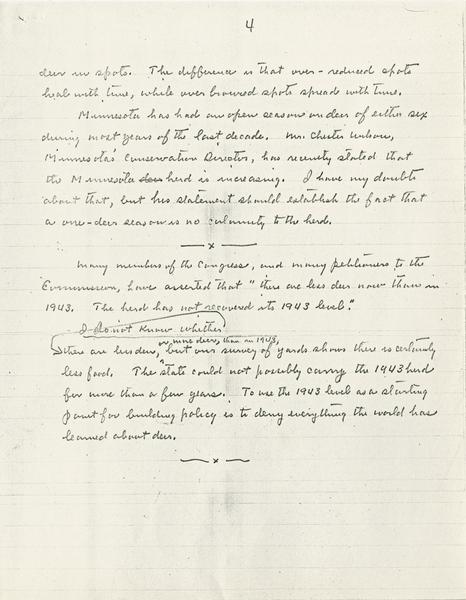 4
deer in spots. The difference is that over-reduced spots
heal with time, while over browsed spots spread with time.
Minnesota has had an open season on deer of either sex
during most years of the last decade. Mr. Chester
Minnesota's Conservation Director, has recently stated that
the Minnesota deer herd is increasing. I have my doubts
about that, but his statement should establish the fact that
a one-deer season is no calamity to the herd.
x
Many members of the Congress, and many petitioners to the
Commission, have asserted that "there are less deer now than in
1943. The herd has not recovered its 1943 level."
I do not know whether
or more deer, than in 1943,
there are less deer, but our survey of yards shows there is certainly
less food. The state could not possibly carry the 1943 herd
for more than a few years. To use the 1943 level as a starting
point for building policy is to deny everything the world has
learned about deer.
x